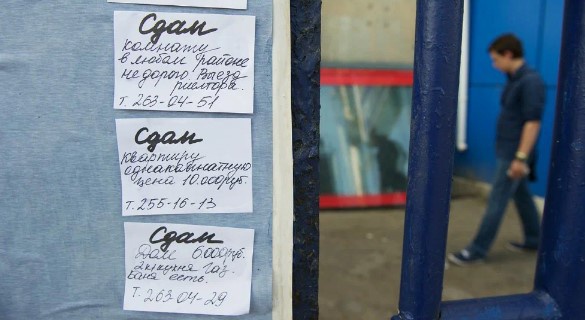 Сдам
комнату
в любом районе
не дорого Выезд
риелтора.
т. 263-04-51
Сдам
квартиру
однакамнатную
цена 10.000руб.
т. 255-16-13
Сдам
Дом 6000руб.
2ккухня газ.
баня есть.
т. 263-04-29